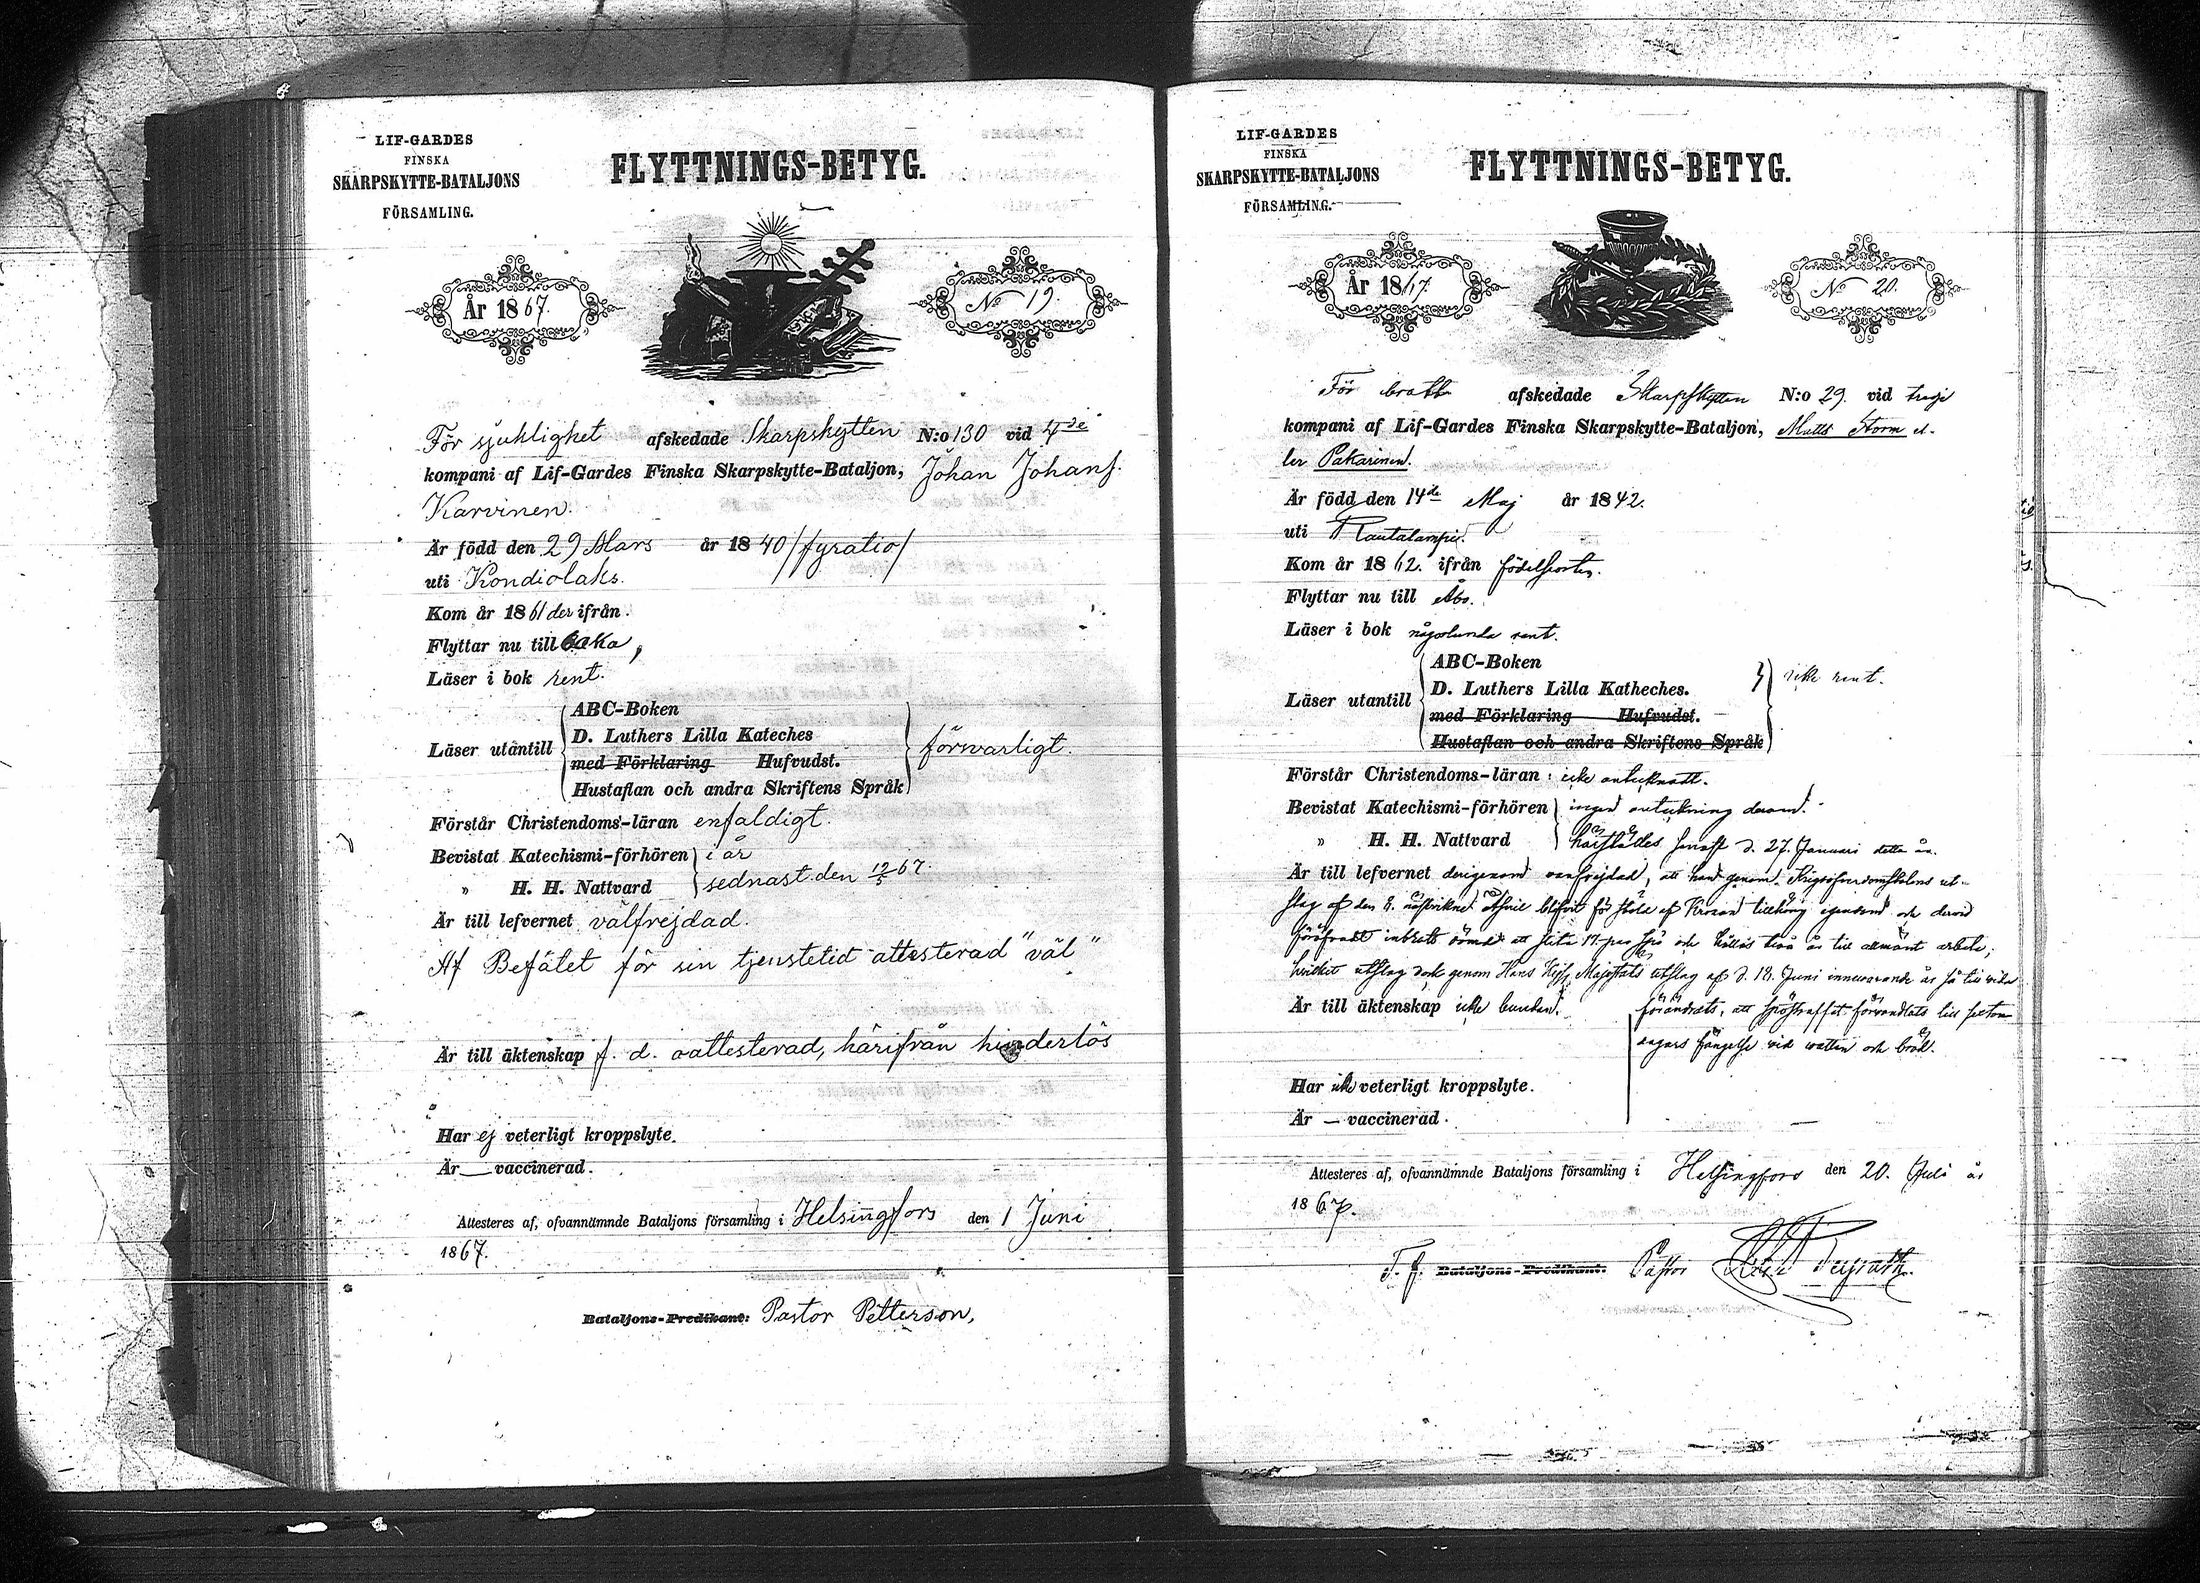 LIF-GARDES
FINSKA
SKARPSKYTTE-BATALJONS
FÖRSAMLING.
FLYTTNINGS-BETYG.
År 1867.
No 19.
För sjuklighet afskedade Skarpskytten N:o 130 vid 4de
kompani af Lif-Gardes Finska Skarpskytte-Bataljon, Johan Johansf.
Karvinen.
Är född den 29 Mars år 1840 /fyratio/
uti Kondiolaks.
Kom år 1861 der ifrån.
Flyttar nu till baka,
Läser i bok rent.
Läser utantill
ABC-Boken
D. Luthers Lilla Kateches
med Förklaring Hufvudst.
Hustaflan och andra Skriftens Språk
försvarligt.
Förstår Christendoms-läran enfaldigt.
Bevistat Katechismi-förhören i år
" H. H. Nattvard sednast den 12/5 67.
Är till lefvernet välfrejdad.
Af Befälet för sin tjenstetid attesterad "väl"
Är till äktenskap f. d. oattesterad, härifrån hinderlös
Har ej veterligt kroppslyte.
Är — vaccinerad.
Attesteres af, ofvannämnde Bataljons församling i Helsingfors den 1 Juni
1867.
Bataljons-Predikant: Pastor Petterson,
LIF-GARDES
FINSKA
SKARPSKYTTE-BATALJONS
FÖRSAMLING.
FLYTTNINGS-BETYG.
År 1867.
No 20.
För brott afskedade Skarpskytten N:o 29. vid tredje
kompani af Lif-Gardes Finska Skarpskytte-Bataljon, Matts Storm el-
ler Pakarinen.
Är född den 14de Maj år 1842.
uti Rautalampi.
Kom år 1862. ifrån födelseorten.
Flyttar nu till Åbo.
Läser i bok någorlunda rent.
Läser utantill
ABC-Boken
D. Luthers Lilla Katheches.
med Förklaring Hufvudst.
Hustaflan och andra Skriftens Språk
icke rent.
Förstår Christendoms-läran icke antecknadt.
Bevistat Katechismi-förhören ingen anteckning derom.
" H. H. Nattvard senast d. 27. Januari detta år.
Är till lefvernet derigenom vanfrejdad, att han genom Krigsöfverdomstolens ut-
slag af den 8. blifvit för stöld af Kronan tillhörig egendom och dervid
inbrott dömd att slita 17. par spö och hållas två år till allmänt arbete;
hvilket utslag dock genom Hans Kejs. Majestäts utslag af d. 18. Juni innevarande år så till vida
Är till äktenskap icke bunden.
förändrats, att spöstraffet förvandlats till fjorton
dagars fängelse vid vatten och bröd.
Har icke veterligt kroppslyte.
Är — vaccinerad.
Attesteres af, ofvannämnde Bataljons församling i Helsingfors den 20. Juli år
1867.
T. f. Bataljons-Predikant: Pastor